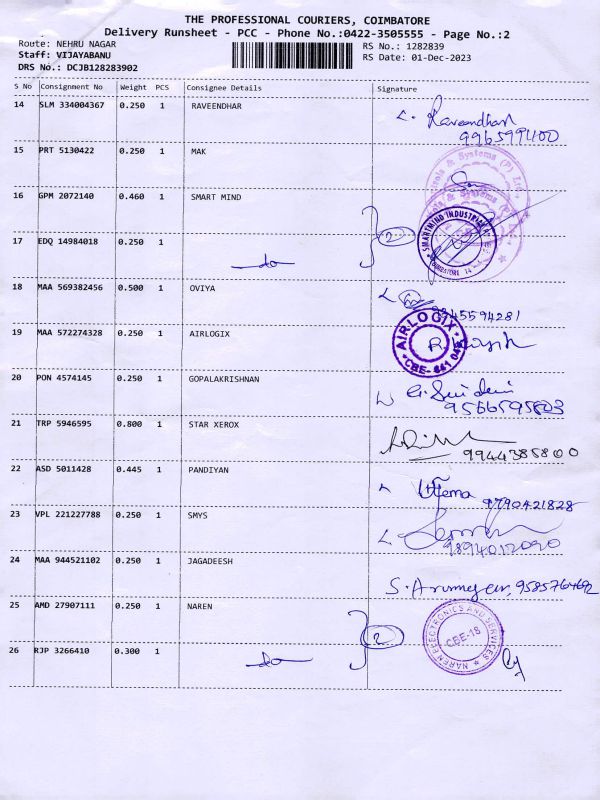 THE PROFESSIONAL COURIERS, COIMBATORE
Delivery Runsheet - PCC - Phone No.:0422-3505555 - Page No.:2
Route: NEHRU NAGAR
RS No.: 1282839
Staff: VIJAYABANU
RS Date: 01-Dec-2023
DRS No.: DCJB128283902
S No Consignment No Weight PCS Consignee Details Signature
14 SLM 334004367 0.250 1 RAVEENDHAR Raveendhar
9965991100
15 PRT 5130422 0.250 1 MAK
16 GPM 2072140 0.460 1 SMART MIND
SMARTMIND INDUSTRIAL
COIMBATORE 14
2
17 EDQ 14984018 0.250 1
do
18 MAA 569382456 0.500 1 OVIYA
9345594281
19 MAA 572274328 0.250 1 AIRLOGIX
AIRLOGIX
CBE-641 045
20 PON 4574145 0.250 1 GOPALAKRISHNAN
9566595803
21 TRP 5946595 0.800 1 STAR XEROX
9944385800
22 ASD 5011428 0.445 1 PANDIYAN
Uma 9790421828
23 VPL 221227788 0.250 1 SMYS
9894012090
24 MAA 944521102 0.250 1 JAGADEESH
S. Arumugam, 9585764692
25 AMD 27907111 0.250 1 NAREN
NAREN ELECTRONICS AND SERVICES
CBE-18
2
26 RJP 3266410 0.300 1
do